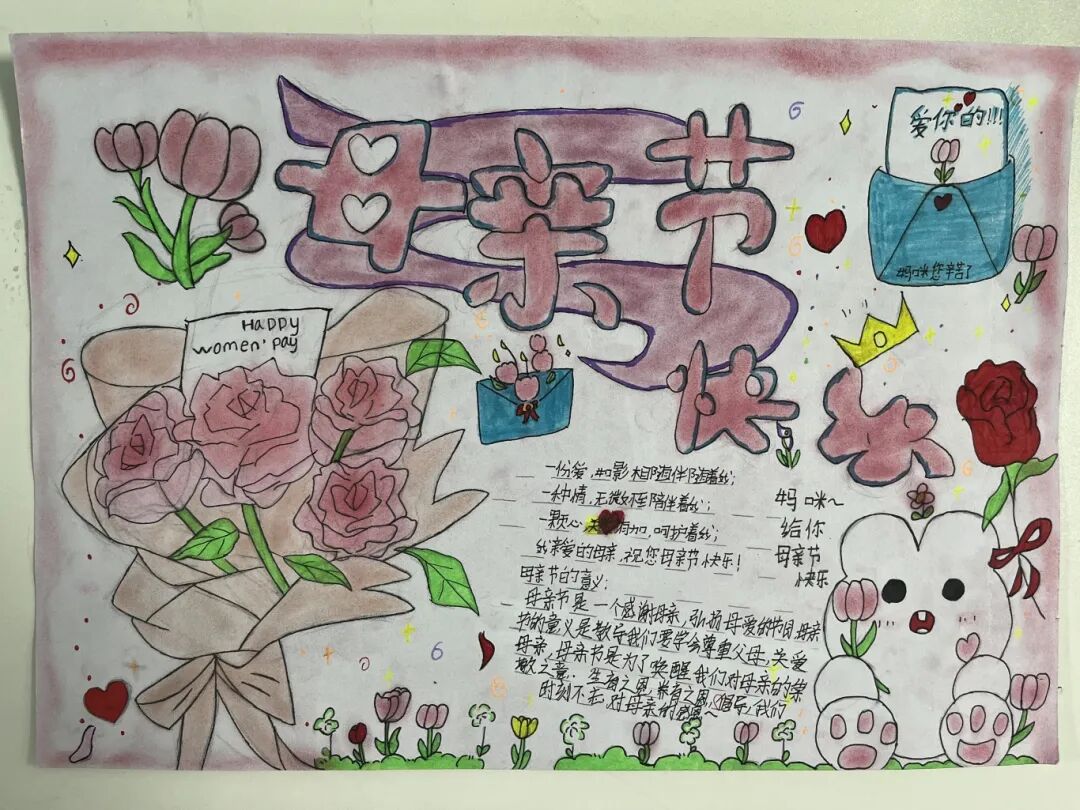 母亲节
快乐
爱你的!!!
妈咪您辛苦了
Happy
women'pay
一份爱,如影相随伴随着我;
一种情,无微不至陪伴着我;
一颗心有加,呵护着我;
我亲爱的母亲,祝您母亲节快乐!
妈咪~
给你
母亲节
快乐
母亲节的意义:
母亲节是一个感谢母亲,弘扬母爱的节日,母亲
节的意义是教导我们要学会尊重父母,关爱
母亲,母亲节是为了唤醒我们对母亲的崇
敬之意.生育之恩,养育之恩,
时刻不忘对母亲的感恩~我们